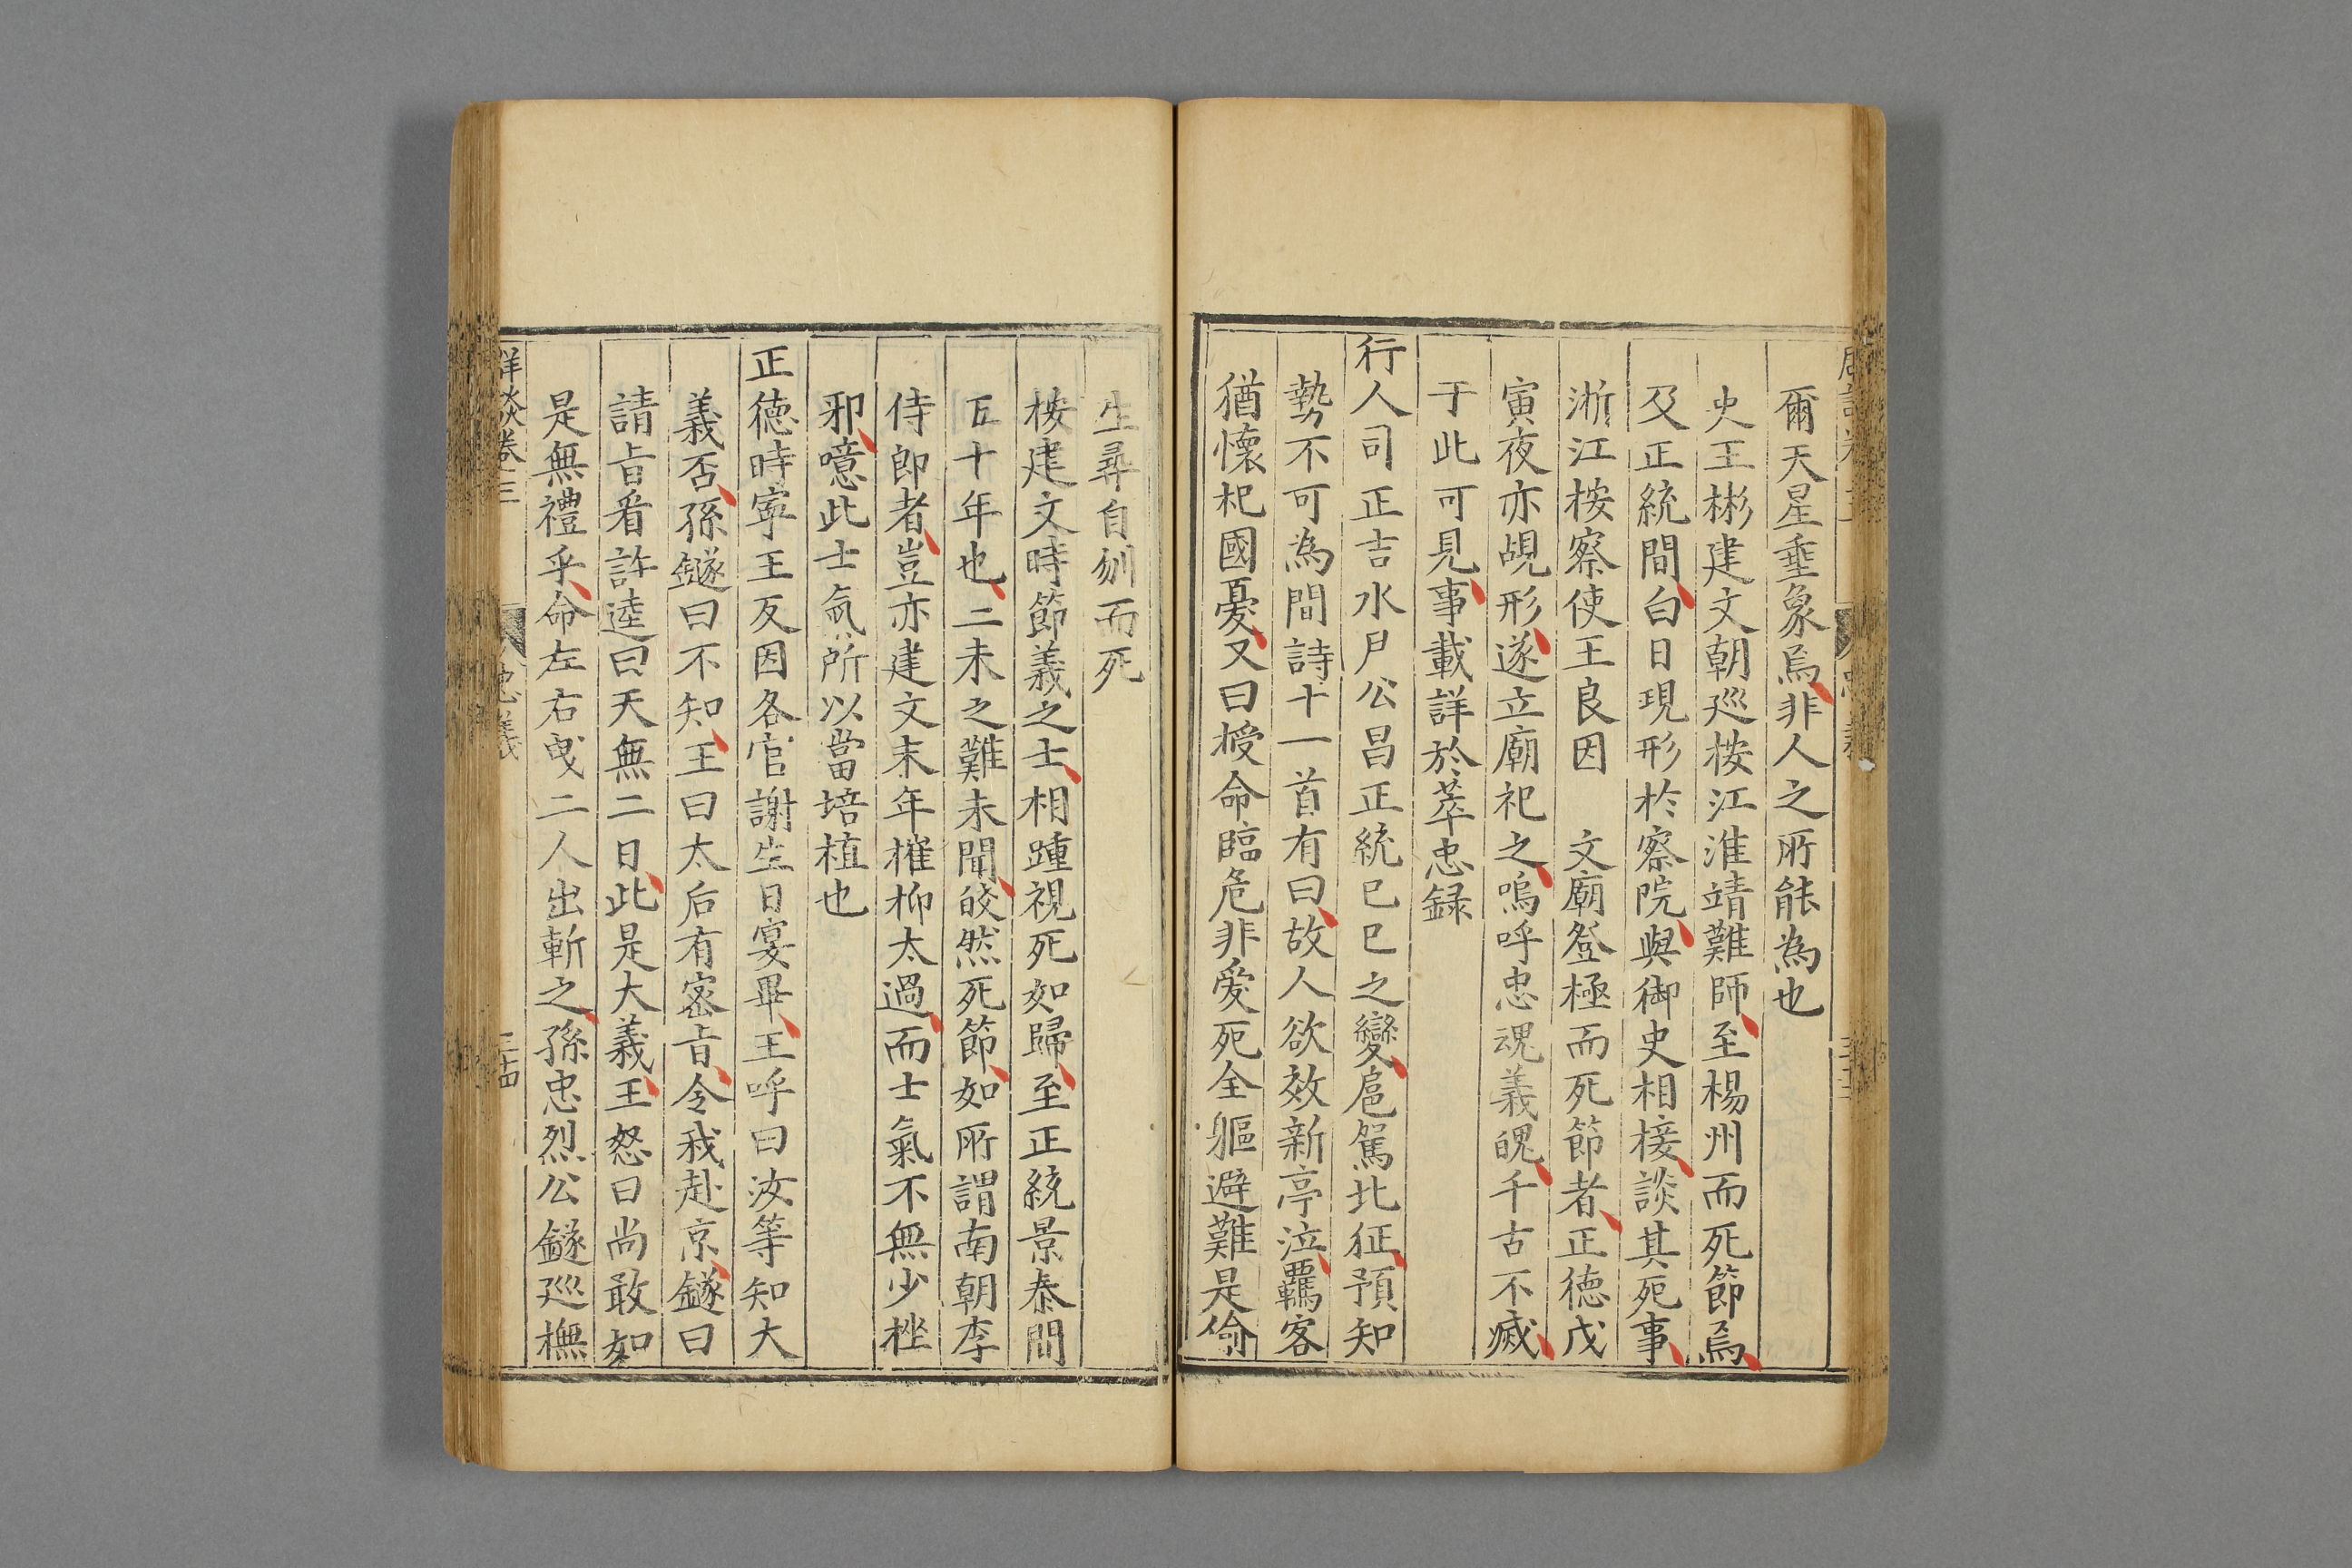 爾天星垂象焉非人之所能為也
史王彬建文朝廵桉江淮靖難師至楊州而死節焉
及正統間白日現形於察院與御史相接談其死事
淅江桉察使王良因　文廟登極而死節者正德戊
寅夜亦覘形遂立廟祀之嗚呼忠魂義魄千古不滅
于此可見事載詳於萃忠録
行人司正吉水尹公昌正統己巳之變扈駕北征預知
勢不可為間詩十一首有曰故人欲效新亭泣羈客
猶懷杞國憂又曰授命臨危非愛死全軀避難是偷
生尋自刎而死
桉建文時節義之士相踵視死如歸至正統景泰間
五十年也二未之難未聞皎然死節如所謂南朝李
侍郎者豈亦建文末年摧抑太過而士氣不無少挫
邪噫此士氣所以當培植也
正德時寧王反因各官謝生日宴畢王呼曰汝等知大
義否孫鐩曰不知王曰太后有密旨令我赴京鐩曰
請旨看許逵曰天無二日此是大義王怒曰尚敢如
是無禮乎命左右曳二人出斬之孫忠烈公鐩廵撫
詳談卷三
忠義
三十四